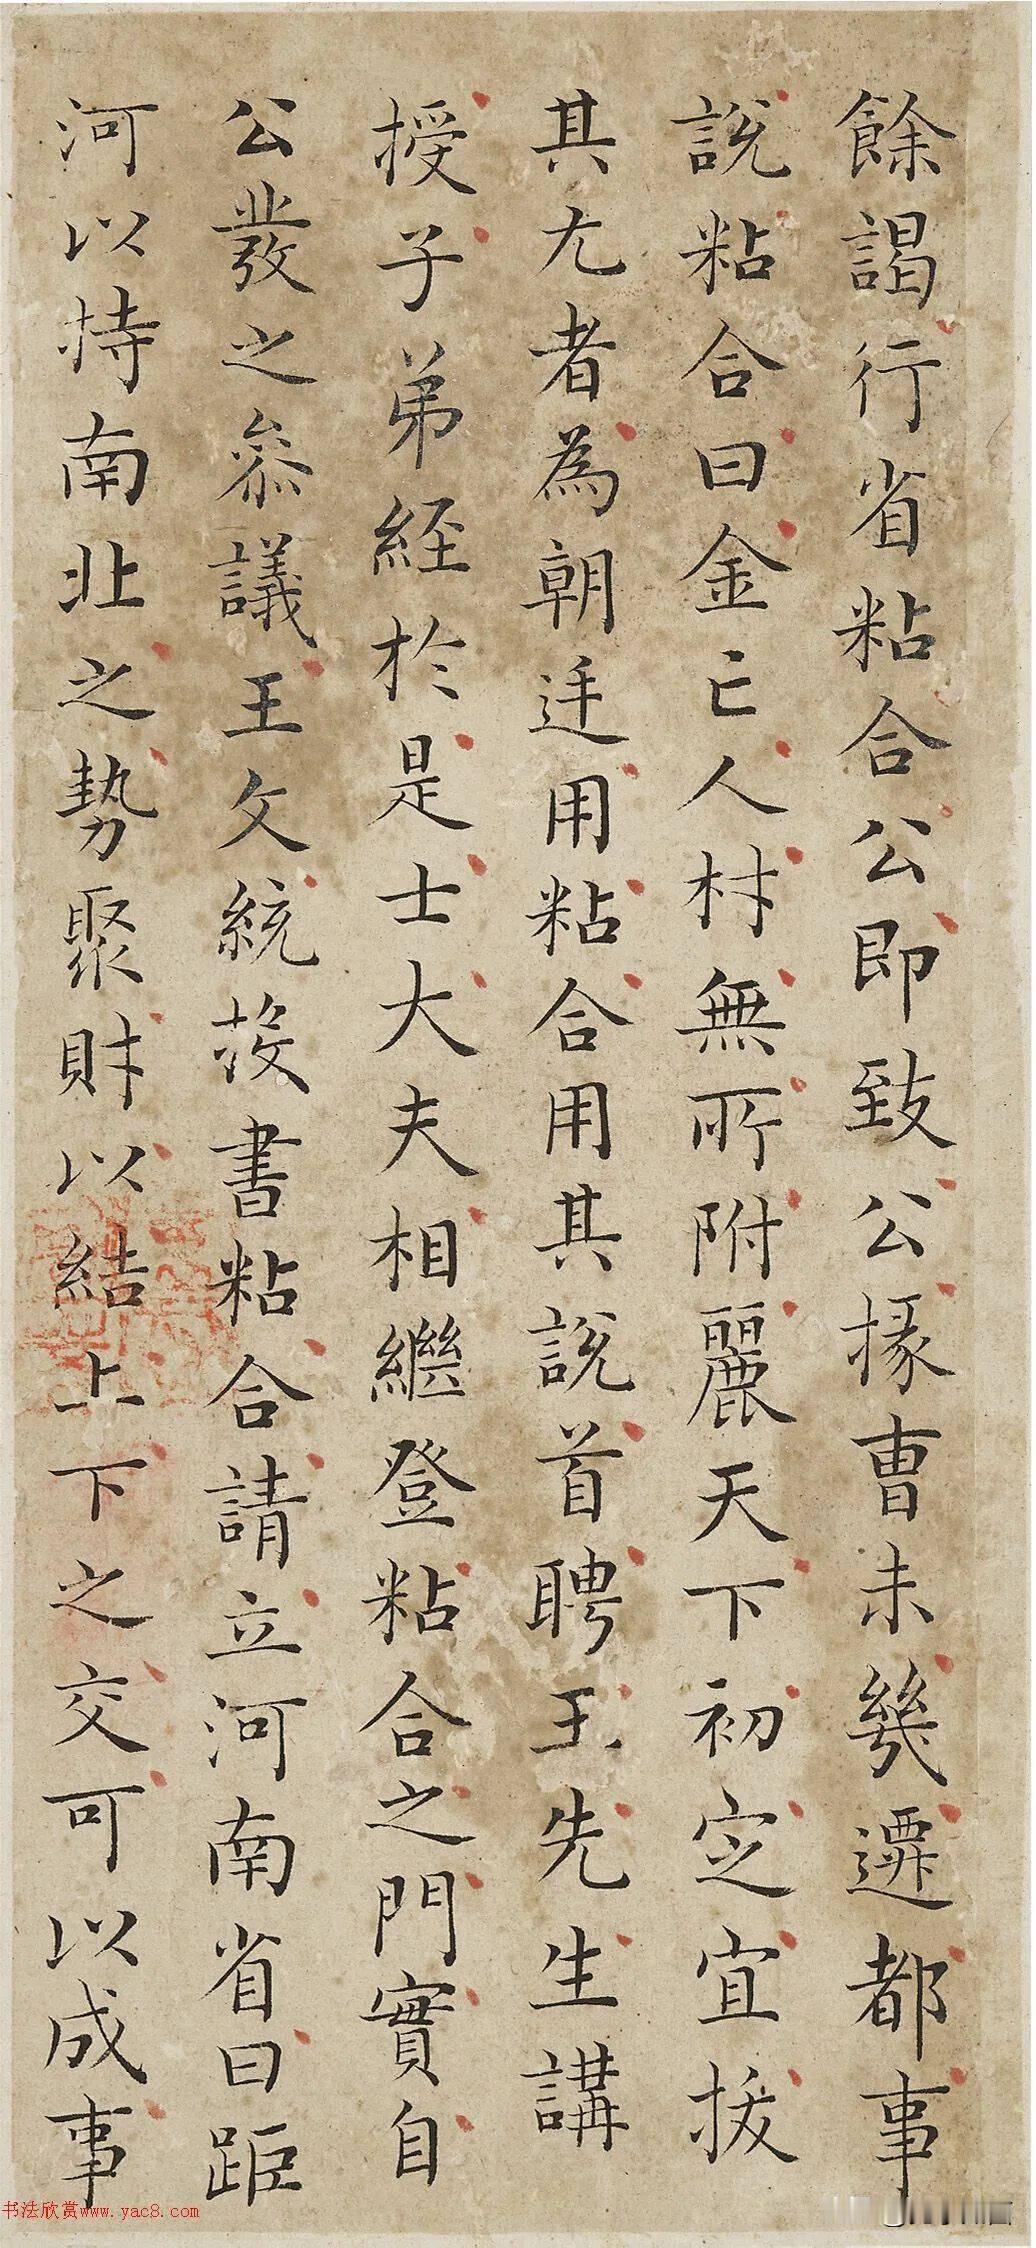 餘謁行省粘合公即致公掾曹未幾遷都事
說粘合曰金亡人材無所附麗天下初定宜拔
其尤者為朝廷用粘合用其說首聘王先生講
授子弟經於是士大夫相繼登粘合之門實自
公發之叅議王文統投書粘合請立河南省曰距
河以持南北之勢聚財以結上下之交可以成事
书法欣赏www.yac8.com